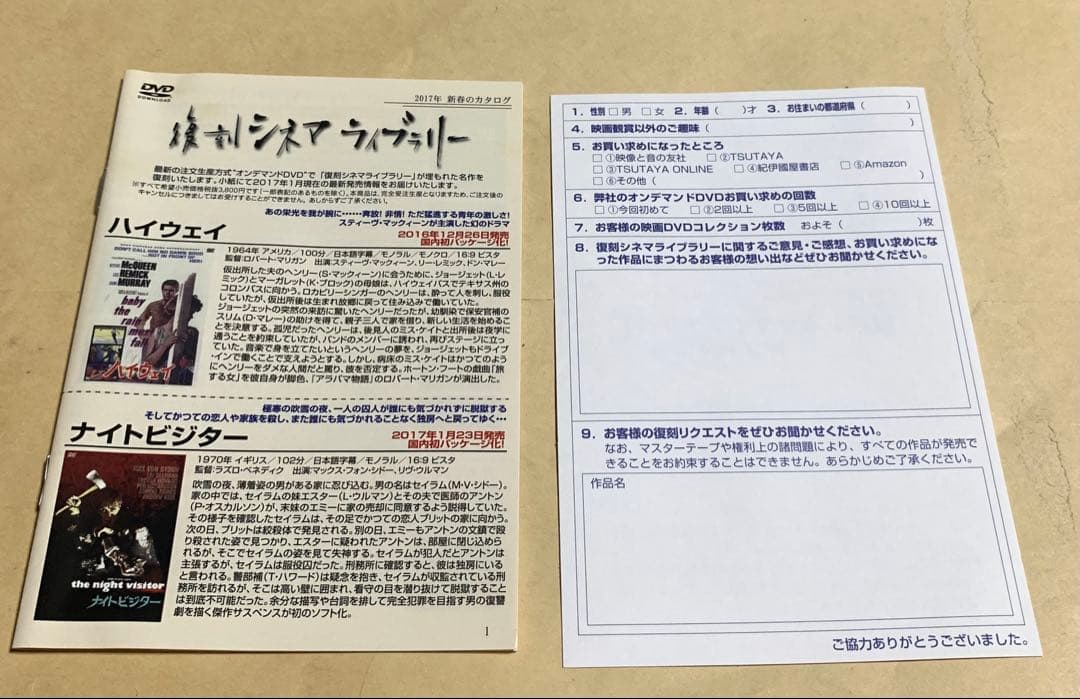 DVD
DOWNLOAD
2017年 新春のカタログ
復刻シネマライブラリー
最新の注文生産方式“オンデマンドDVD”で「復刻シネマライブラリー」が埋もれた名作を
復刻いたします。小紙にて2017年1月現在の最新発売情報をお届けいたします。
※すべて希望小売価格税抜3,800円です(一部表記のあるものを除く)。本商品は、完全受注生産となりますため、ご注文後の
キャンセルにつきましてはお受けすることができません。あしからずご了承ください。
あの栄光を我が腕に……奔放!非情!ただ猛進する青年の激しさ!
スティーヴ・マックィーンが主演した幻のドラマ
ハイウェイ
2016年12月26日発売
国内初パッケージ化!
1964年 アメリカ/100分/日本語字幕/モノラル/モノクロ/16:9 ビスタ
監督:ロバート・マリガン 出演:スティーヴ・マックィーン、リー・レミック、ドン・マレー
仮出所した夫のヘンリー(S・マックィーン)に会うために、ジョージェット(L・レ
ミック)とマーガレット(K・ブロック)の母娘は、ハイウェイバスでテキサス州の
コロンバスに向かう。ロカビリーシンガーのヘンリーは、酔って人を刺し、服役
していたが、仮出所後は生まれ故郷に戻って住み込みで働いていた。
ジョージェットの突然の来訪に驚いたヘンリーだったが、幼馴染で保安官補の
スリム(D・マレー)の助けを得て、親子三人で家を借り、新しい生活を始めるこ
とを決意する。孤児だったヘンリーは、後見人のミス・ケイトと出所後は夜学に
通うことを約束していたが、バンドのメンバーに誘われ、再びステージに立っ
ていた。音楽で身を立てたいというヘンリーの夢を、ジョージェットもドライブ
・インで働くことで支えようとする。しかし、病床のミス・ケイトはかつてのよう
にヘンリーをダメな人間だと罵り、彼を否定する。ホートン・フートの戯曲「旅
する女」を彼自身が脚色、「アラバマ物語」のロバート・マリガンが演出した。
McQUEEN
REMICK
MURRAY
baby
the rain
must
fall
ハイウェイ
極寒の吹雪の夜、一人の囚人が誰にも気づかれずに脱獄する
そしてかつての恋人や家族を殺し、また誰にも気づかれることなく独房へと戻ってゆく…
ナイトビジター
2017年1月23日発売
国内初パッケージ化!
1970年 イギリス/102分/日本語字幕/モノラル/16:9 ビスタ
監督:ラズロ・ベネディク 出演:マックス・フォン・シドー、リヴ・ウルマン
吹雪の夜、薄着姿の男がある家に忍び込む。男の名はセイラム(M・V・シドー)。
家の中では、セイラムの妹エスター(L・ウルマン)とその夫で医師のアントン
(P・オスカルソン)が、末妹のエミーに家の売却に同意するよう説得していた。
その様子を確認したセイラムは、その足でかつての恋人ブリットの家に向かう。
次の日、ブリットは絞殺体で発見される。別の日、エミーもアントンの文鎮で殴
り殺された姿で見つかり、エスターに疑われたアントンは、部屋に閉じ込めら
れるが、そこでセイラムの姿を見て失神する。セイラムが犯人だとアントンは
主張するが、セイラムは服役囚だった。刑務所に確認すると、彼は独房にいる
と言われる。警部補(T・ハワード)は疑念を抱き、セイラムが収監されている刑
務所を訪れるが、そこは高い壁に囲まれ、看守の目を潜り抜けて脱獄すること
は到底不可能だった。余分な描写や台詞を排して完全犯罪を目指す男の復讐
劇を描く傑作サスペンスが初のソフト化。
the night visitor
ナイトビジター
1
1. 性別 □ 男 □ 女 2. 年齢 ( )才 3. お住まいの都道府県 ( )
4. 映画観賞以外のご趣味 ( )
5. お買い求めになったところ
□ ①映像と音の友社 □ ②TSUTAYA
□ ③TSUTAYA ONLINE □ ④紀伊國屋書店 □ ⑤Amazon
□ ⑥その他 ( )
6. 弊社のオンデマンドDVDお買い求めの回数
□ ①今回初めて □ ②2回以上 □ ③5回以上 □ ④10回以上
7. お客様の映画DVDコレクション枚数 およそ ( )枚
8. 復刻シネマライブラリーに関するご意見・ご感想、お買い求めにな
った作品にまつわるお客様の想い出などぜひお聞かせください。
9. お客様の復刻リクエストをぜひお聞かせください。
なお、マスターテープや権利上の諸問題により、すべての作品が発売で
きることをお約束することはできません。あらかじめご了承ください。
作品名
ご協力ありがとうございました。